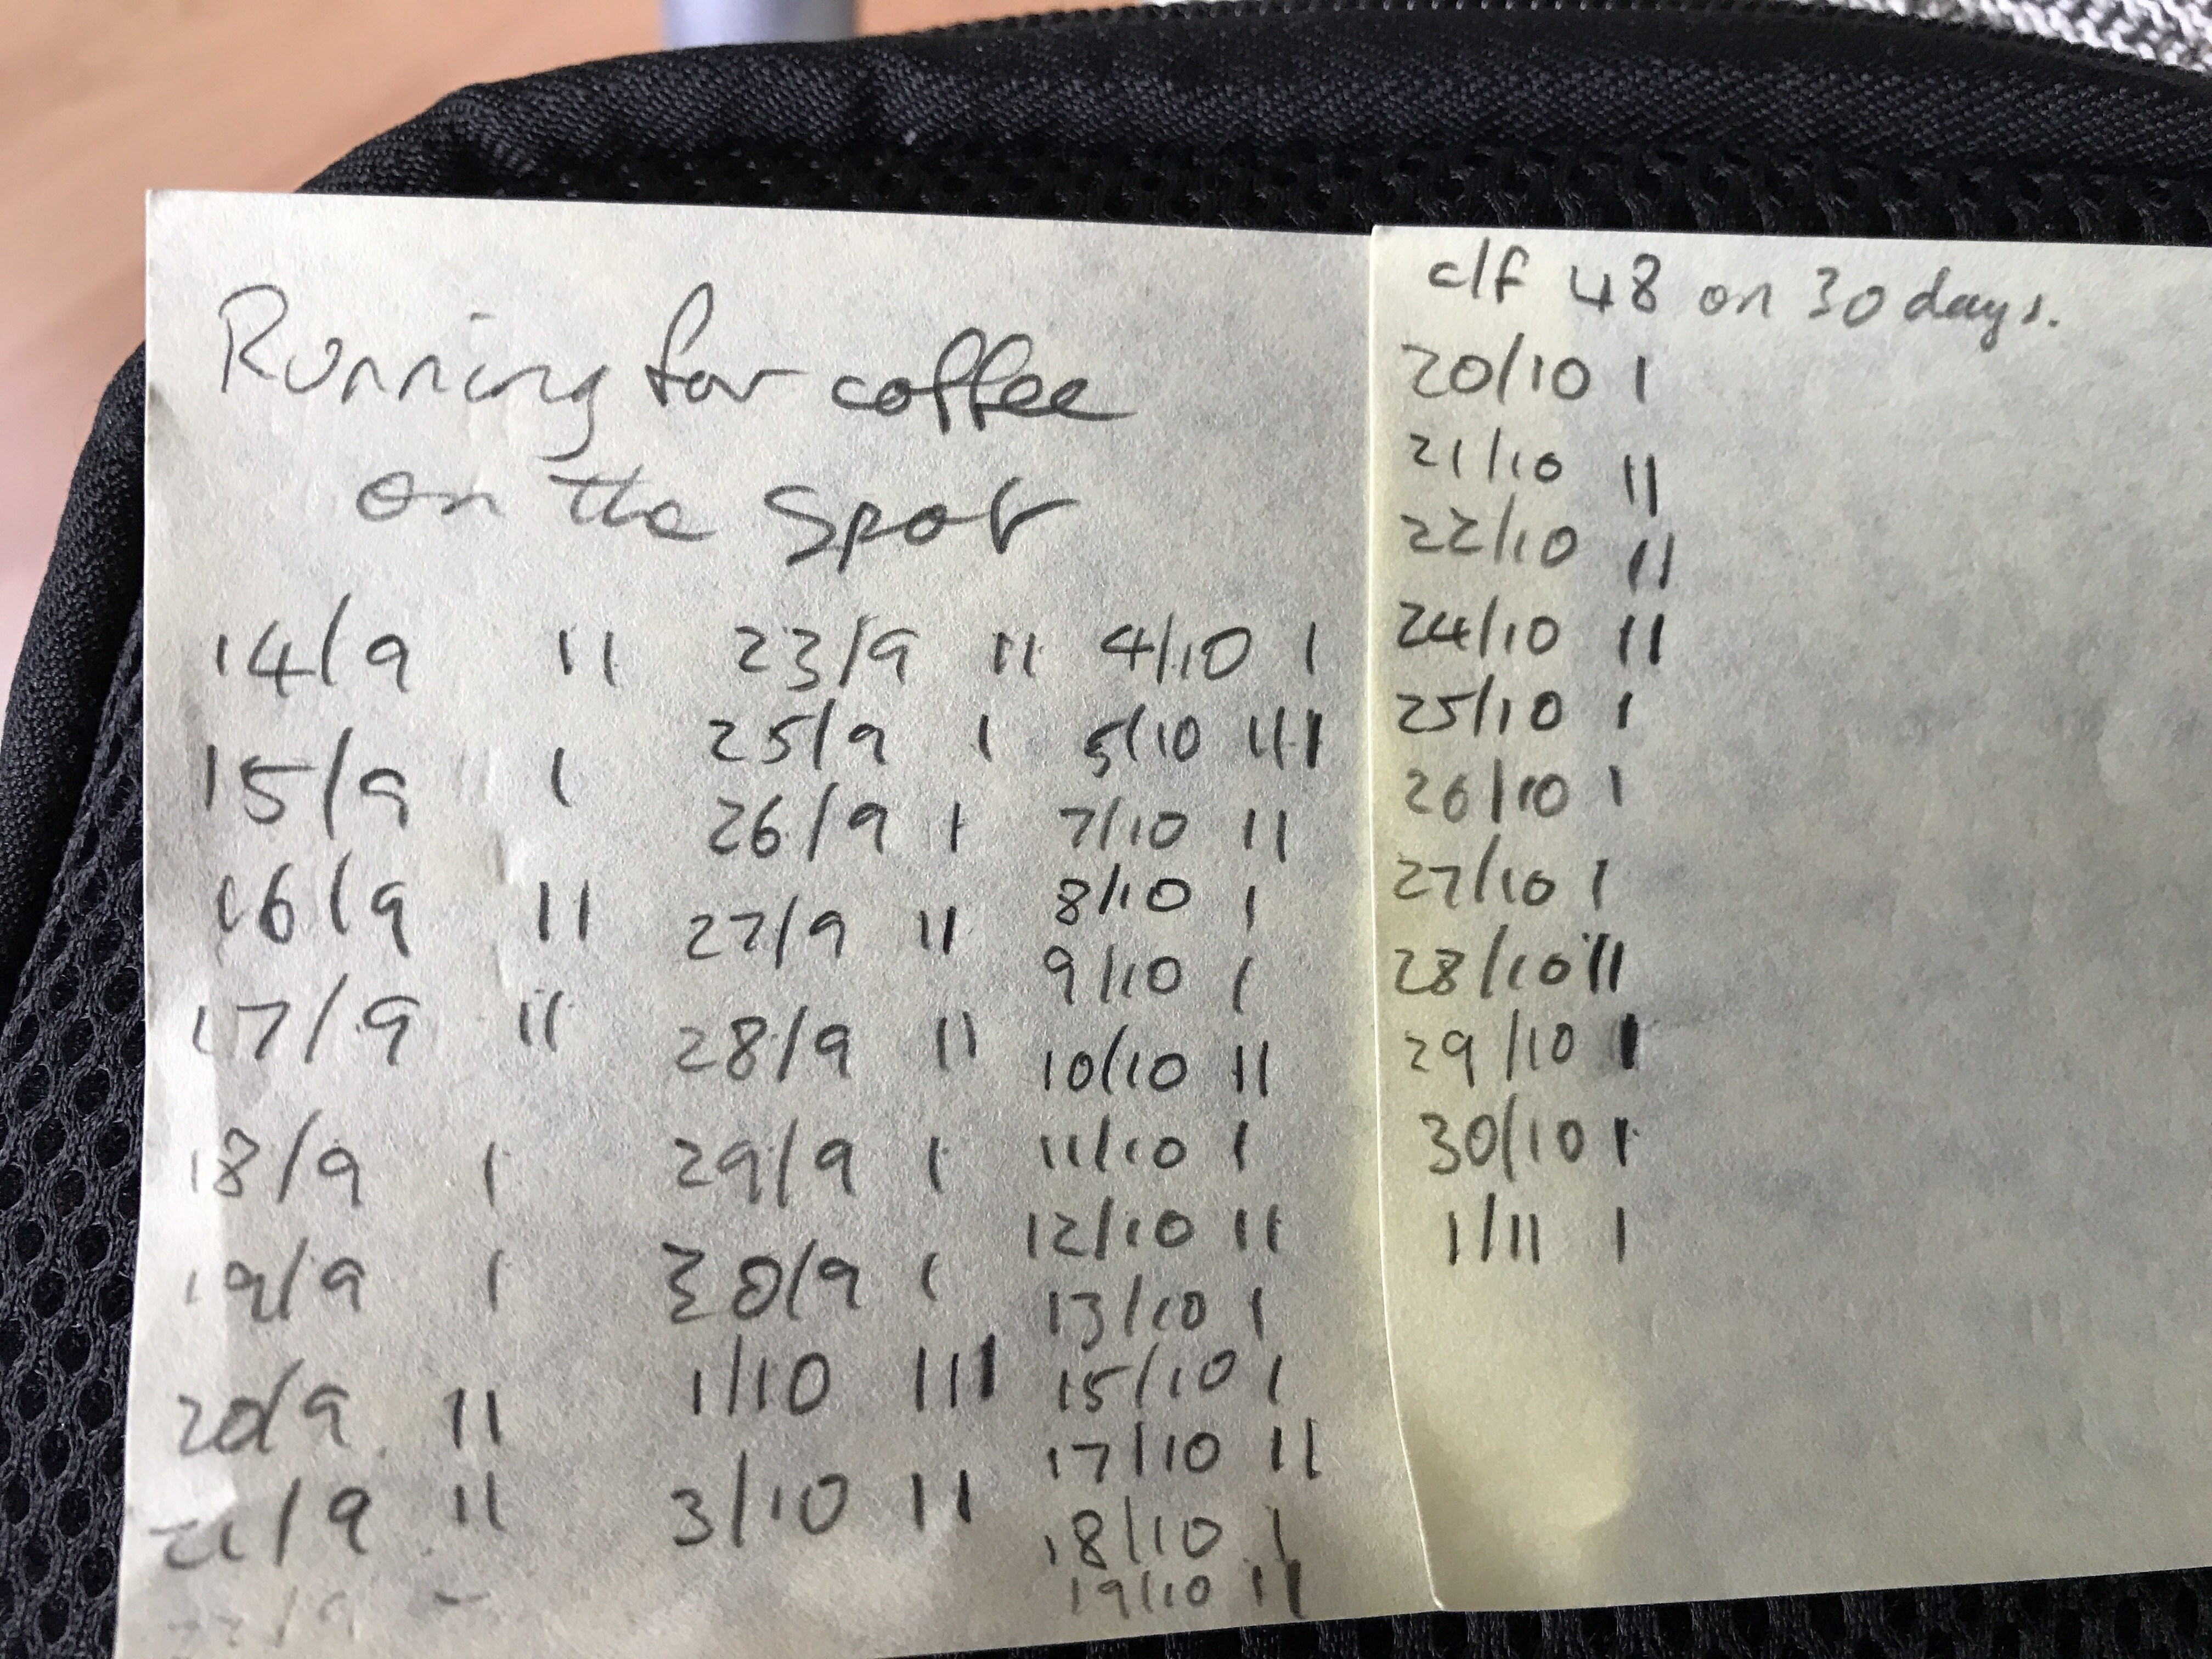 Running for coffee
on the spot
14/9 11
15/9 1
16/9 11
17/9 11
18/9 1
19/9 1
20/9 11
21/9 11
23/9 11
25/9 1
26/9 1
27/9 11
28/9 11
29/9 1
30/9 1
1/10 111
3/10 11
4/10 1
5/10 111
7/10 11
8/10 1
9/10 1
10/10 11
11/10 1
12/10 11
13/10 1
15/10 1
17/10 11
18/10 1
19/10 11
c/f 48 on 30 days.
20/10 1
21/10 11
22/10 11
24/10 11
25/10 1
26/10 1
27/10 1
28/10 11
29/10 1
30/10 1
1/11 1